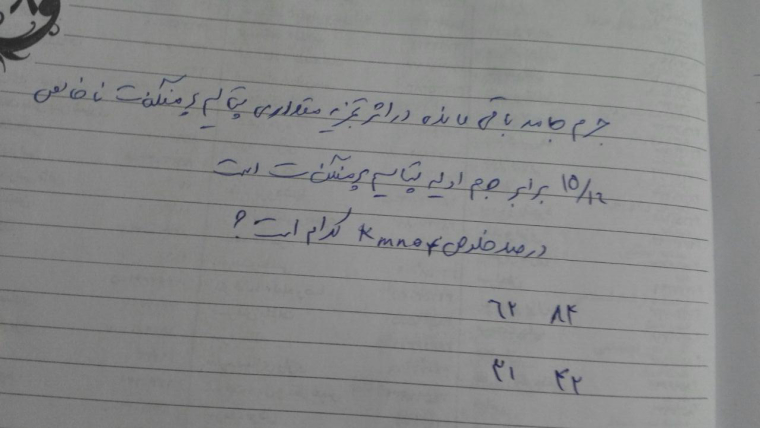 جرم جامد باقی مانده در اثر تجزیه مقداری پتاسیم پرمنگنات ناخالص
۱۵/۱۲ برابر جرم اولیه پتاسیم پرمنگنات است
درصد خلوص Kmno۴ کدام است ؟
۸۴ ۶۲
۴۲ ۳۱